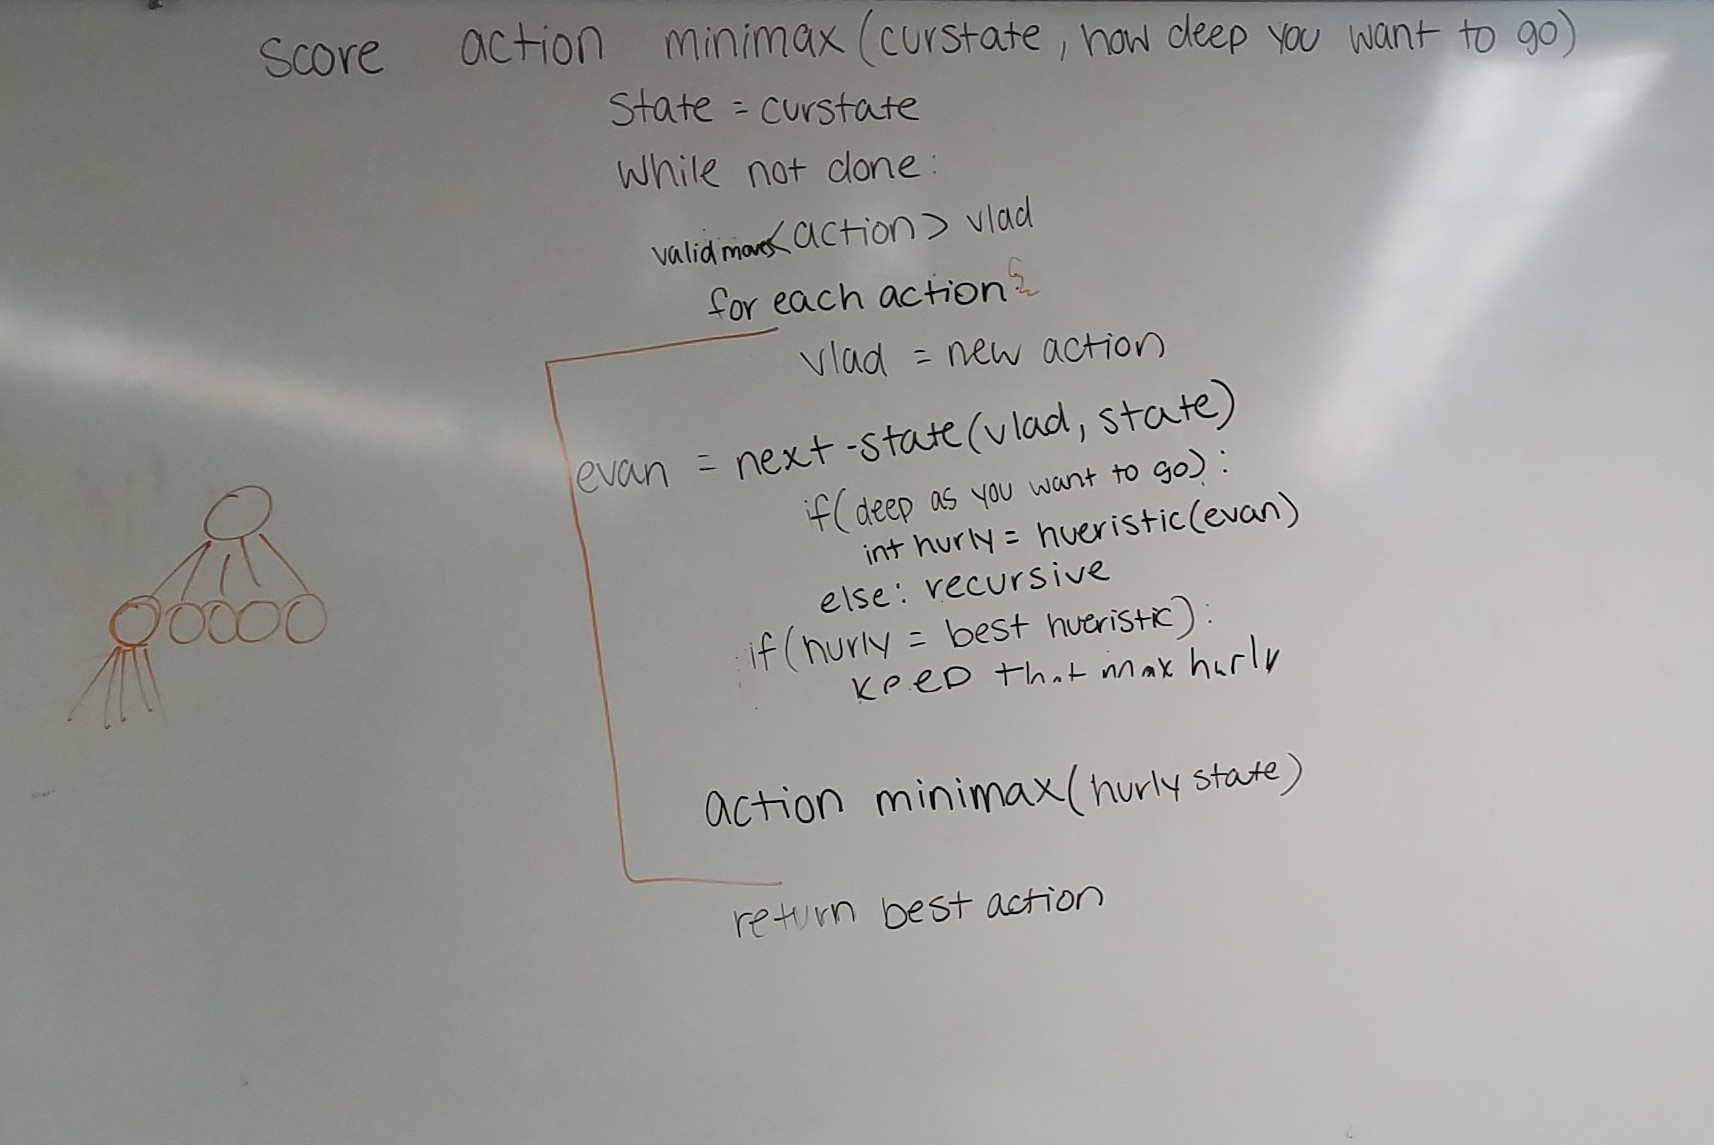 score action minimax (curstate, how deep you want to go)
state = curstate
while not done:
valid moves<action> vlad
for each action {
vlad = new action
evan = next-state(vlad, state)
if(deep as you want to go):
int hurly = hueristic(evan)
else: recursive
if(hurly = best hueristic):
keep that max hurly
action minimax(hurly state)
return best action